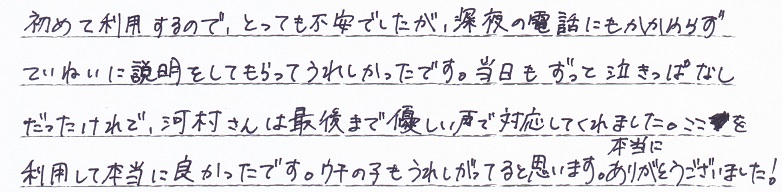 初めて利用するので、とっても不安でしたが、深夜の電話にもかかわらず
ていねいに説明をしてもらってうれしかったです。当日もずっと泣きっぱなし
だったけれど、河村さんは最後まで優しい声で対応してくれました。ここを
利用して本当に良かったです。ウチの子もうれしがってると思います。本当にありがとうございました！